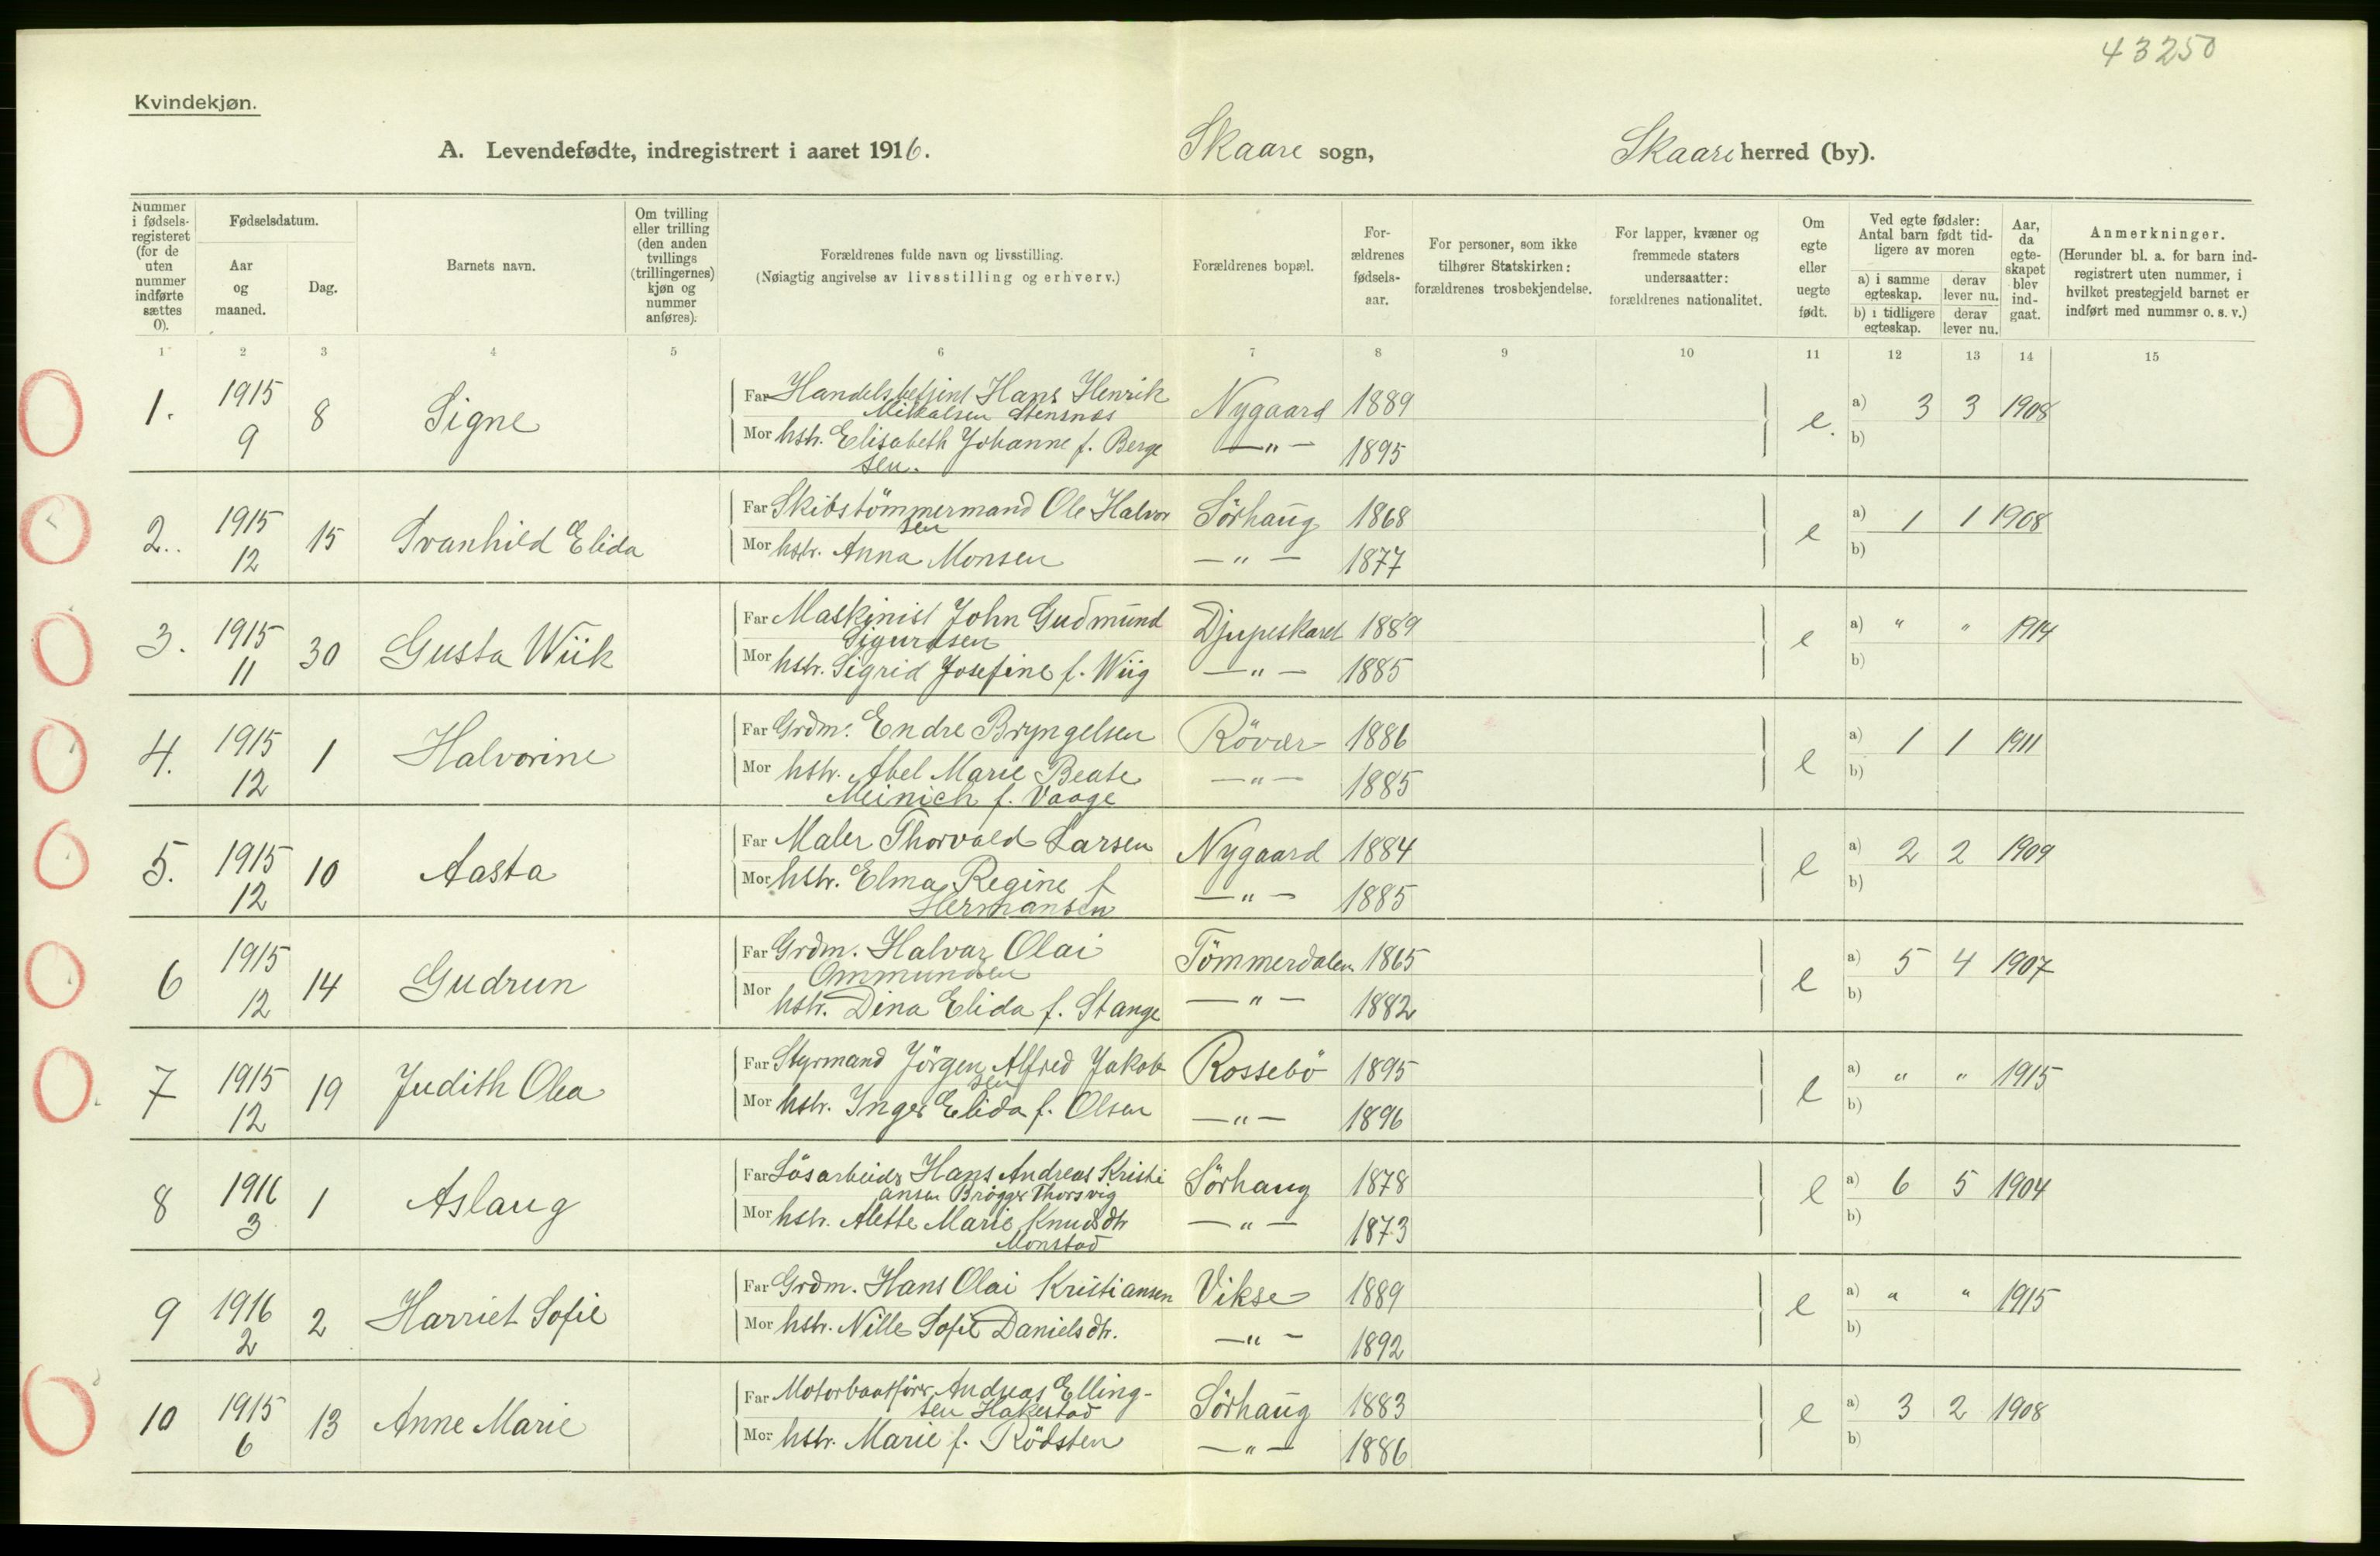 43250
Kvindekjøn.
A. Levendefødte, indregistrert i aaret 1916. Skaare sogn, Skaare herred (by).
Nummer i fødsels-registeret (for de uten nummer indførte sættes 0).
Fødselsdatum.
Aar og maaned.
Dag.
Barnets navn.
Om tvilling eller trilling (den anden tvillings (trillingernes) kjøn og nummer anføres).
Forældrenes fulde navn og livsstilling.
(Nøiagtig angivelse av livsstilling og erhverv.)
Forældrenes bopæl.
For-ældrenes fødsels-aar.
For personer, som ikke tilhører Statskirken: forældrenes trosbekjendelse.
For lapper, kvæner og fremmede staters undersaatter: forældrenes nationalitet.
Om egte eller uegte født.
Ved egte fødsler: Antal barn født tid-ligere av moren
a) i samme egteskap. derav lever nu.
b) i tidligere egteskap. derav lever nu.
Aar, da egte-skapet blev ind-gaat.
Anmerkninger.
(Herunder bl. a. for barn ind-registrert uten nummer, i hvilket prestegjeld barnet er indført med nummer o. s. v.)
1 2 3 4 5 6 7 8 9 10 11 12 13 14 15
1. 1915 9 8 Signe
Far Handelsbetjent Hans Henrik Nygaard 1889 e. a) 3 3 1908
Mikalsen Stensnæs
Mor hstr. Elisabeth Johanne f. Berge —"— 1895 b)
sen.
2.. 1915 12 15 Svanhild Elida
Far Skibstömmermand Ole Halvor Sörhaug 1868 e a) 1 1 1908
sen
Mor hstr. Anna Monsen —"— 1877 b)
3. 1915 11 30 Gusta Wiik
Far Maskinist John Gudmund Djupeskaret 1889 e a) " " 1914
Sigurdsen
Mor hstr. Sigrid Josefine f. Wiig —"— 1885 b)
4. 1915 12 1 Halvorine
Far Grdm. Endre Bryngelsen Röver 1886 e a) 1 1 1911
Mor hstr. Abel Marie Beate —"— 1885 b)
Meinich f. Vaage
5. 1915 12 10 Aasta
Far Maler Thorvald Larsen Nygaard 1884 e a) 2 2 1909
Mor hstr. Elma Regine f —"— 1885 b)
Hermansen
6 1915 12 14 Gudrun
Far Grdm. Halvar Olai Tömmerdalen 1865 e a) 5 4 1907
Ommundsen
Mor hstr. Dina Elida f. Stange —"— 1882 b)
7 1915 12 19 Judith Olea
Far Styrmand Jörgen Alfred Jakob Rossebö 1895 e a) " " 1915
sen
Mor hstr. Inger Elida f. Olsen —"— 1896 b)
8 1916 3 1 Aslaug
Far Lösarbeider Hans Andreas Kristi Sörhaug 1878 e a) 6 5 1904
ansen Brögger Thorsvig
Mor hstr. Alette Marie Knudsdtr —"— 1873 b)
Monstad
9 1916 2 2 Harriet Sofie
Far Grdm. Hans Olai Kristiansen Vikse 1889 e a) " " 1915
Mor hstr. Nille Sofie Danielsdtr. —"— 1892 b)
10 1915 6 13 Anne Marie
Far Motorbaatförer Andreas Elling- Sörhaug 1883 e a) 3 2 1908
sen Hakestad
Mor hstr. Marie f. Rödsten —"— 1886 b)